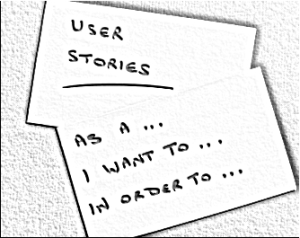 USER
STORIES
AS A ...
I WANT TO ...
IN ORDER TO ...